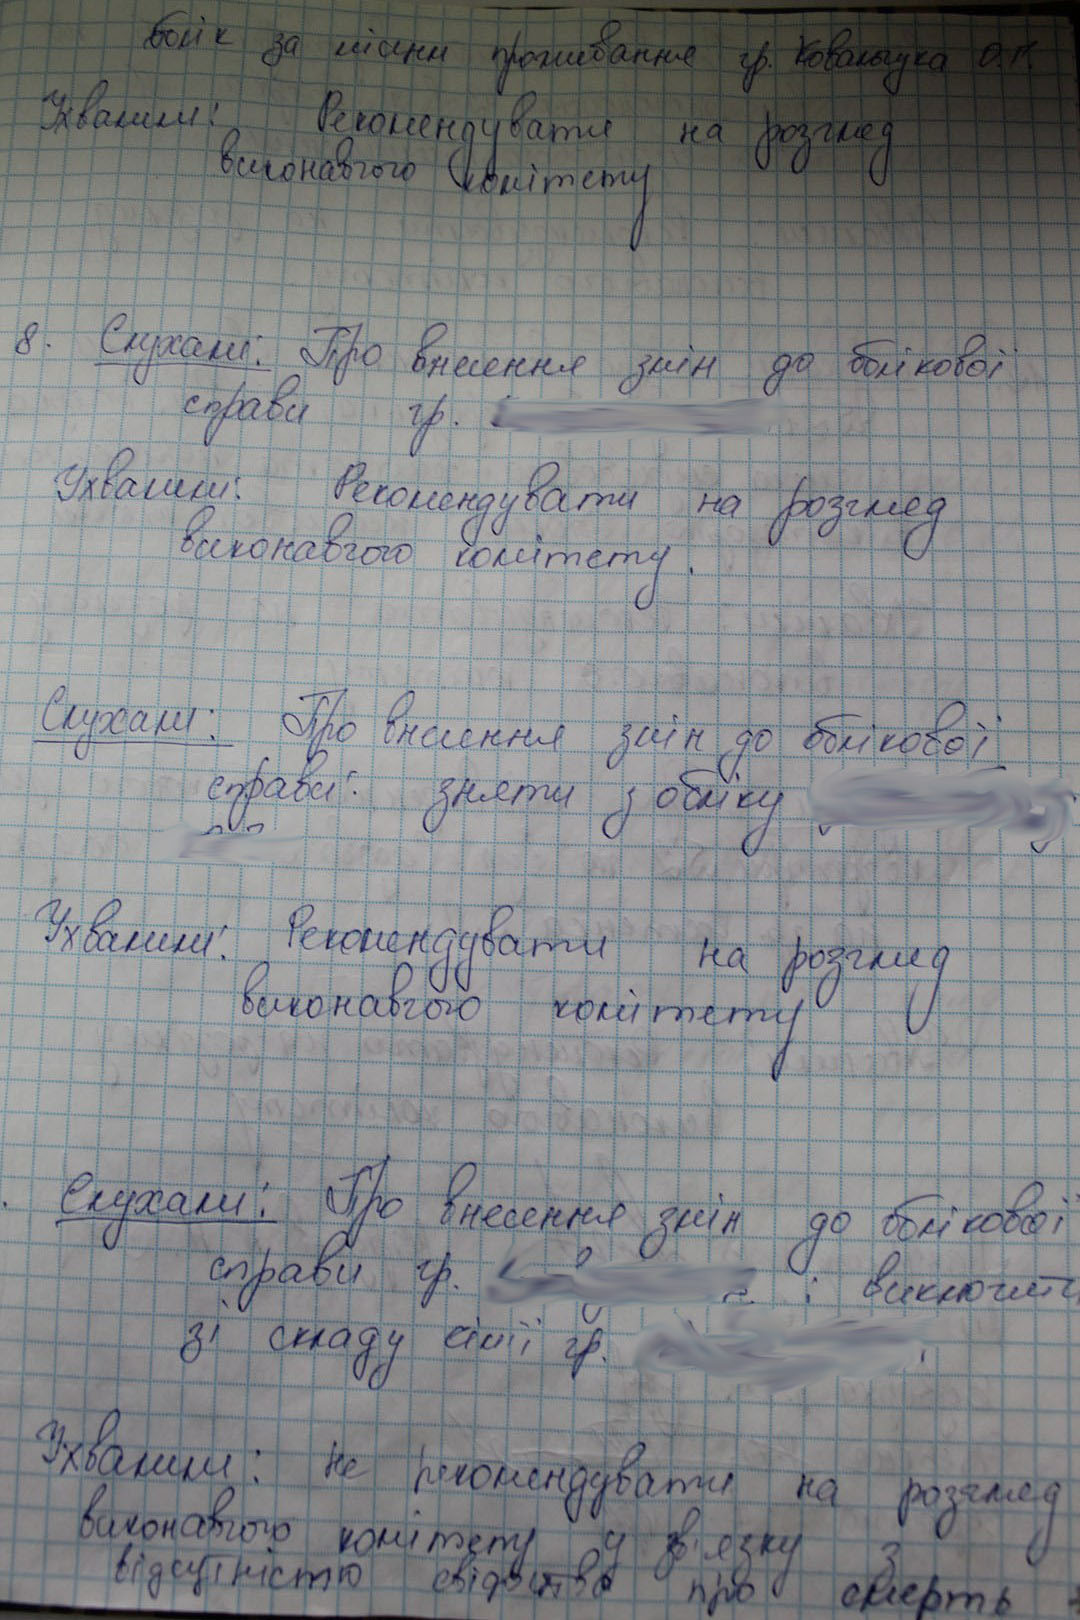 облік за місцем проживання гр. Ковальчука О.П.
Ухвалили: Рекомендувати на розгляд
виконавчого комітету
8. Слухали: Про внесення змін до облікової
справи гр.
Ухвалили: Рекомендувати на розгляд
виконавчого комітету.
Слухали: Про внесення змін до облікової
справи: зняти з обліку
Ухвалили: Рекомендувати на розгляд
виконавчого комітету
Слухали: Про внесення змін до облікової
справи гр. : виключити
зі складу сім'ї гр.
Ухвалили: не рекомендувати на розгляд
виконавчого комітету у зв'язку з
відсутністю свідоцтва про смерть